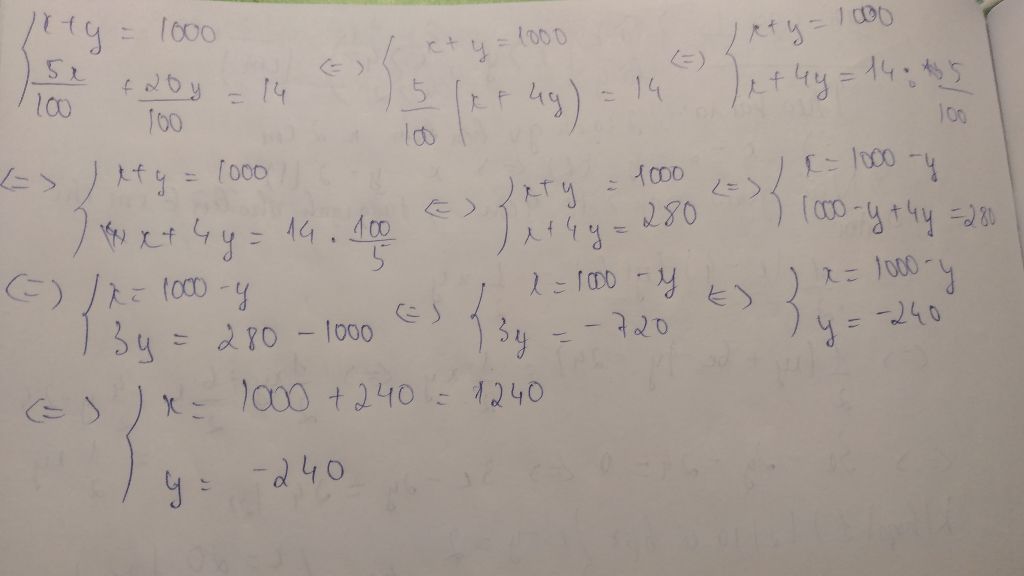 { x + y = 1000 ; 5x/100 + 20y/100 = 14 <=> { x + y = 1000 ; 5/100 (x + 4y) = 14 <=> { x + y = 1000 ; x + 4y = 14 : 5/100
<=> { x + y = 1000 ; x + 4y = 14 . 100/5 <=> { x + y = 1000 ; x + 4y = 280 <=> { x = 1000 - y ; 1000 - y + 4y = 280
<=> { x = 1000 - y ; 3y = 280 - 1000 <=> { x = 1000 - y ; 3y = -720 <=> { x = 1000 - y ; y = -240
<=> { x = 1000 + 240 = 1240 ; y = -240